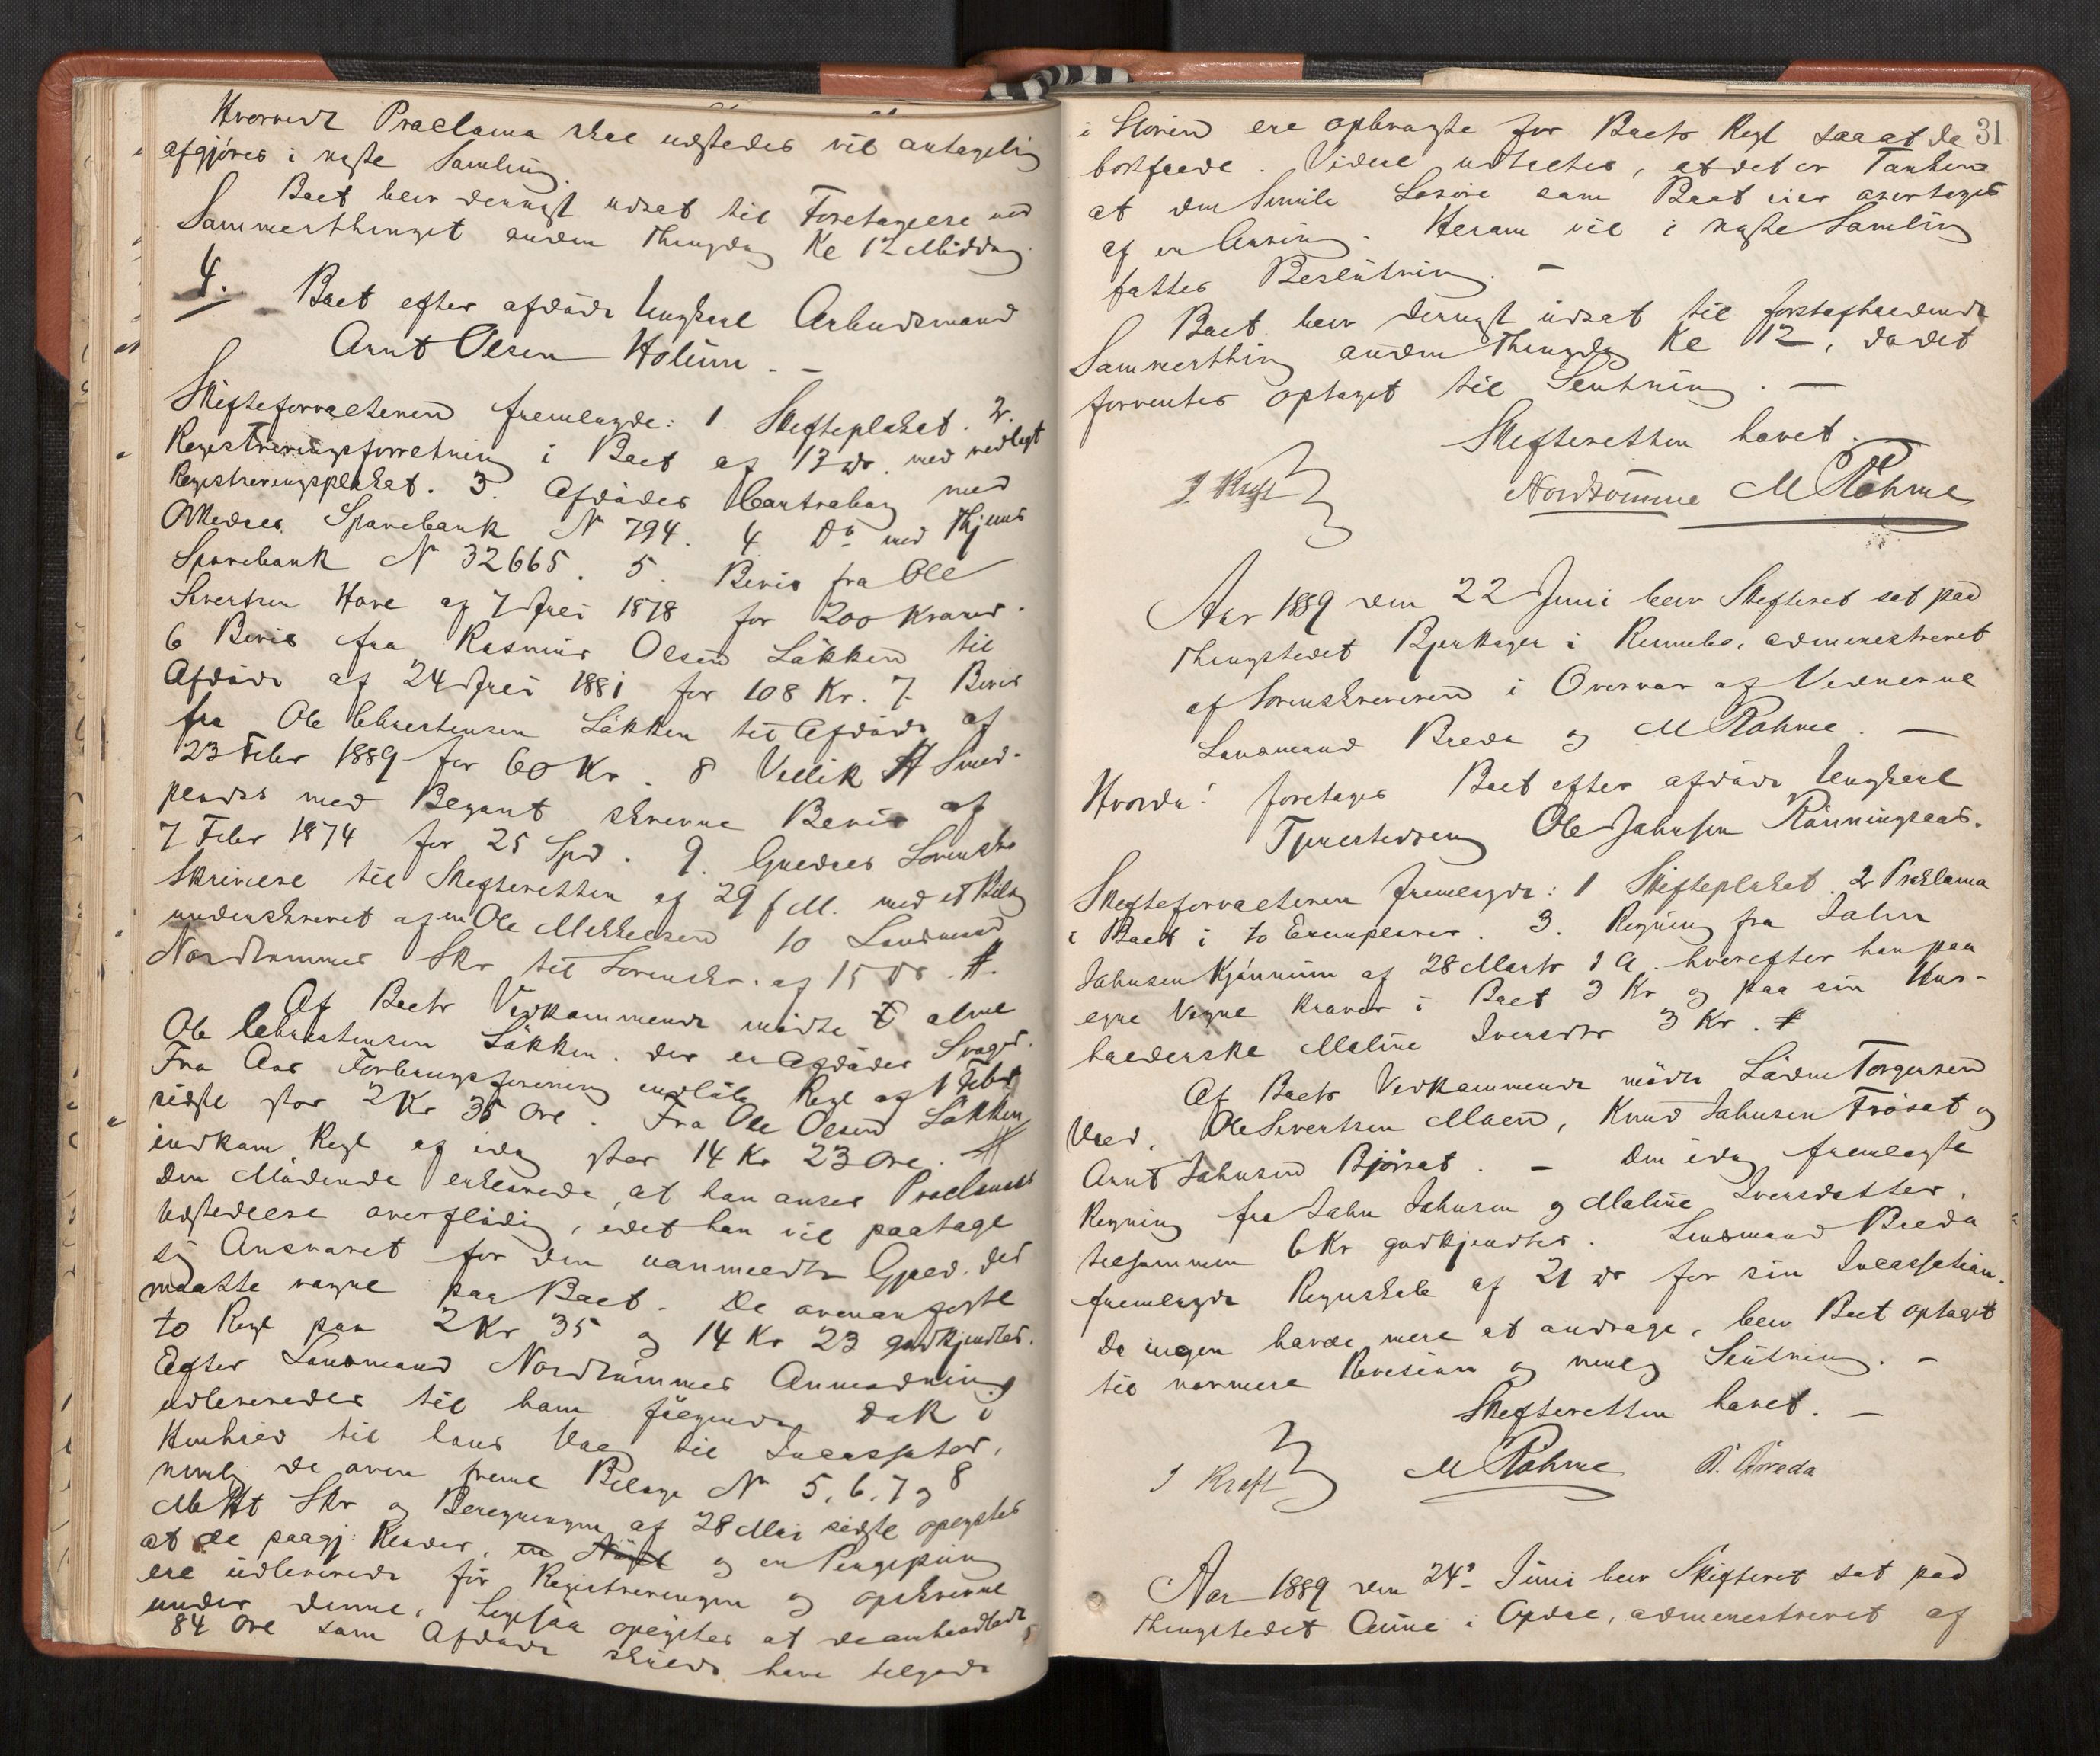 Hvorvidt Proclama skal udstedes vil antagelig
afgjöres i næste Samling.
Boet blev dernæst udsat til Foretagelse ved
Sommerthinget anden Thingdag Kl 12 Middag.
4. Boet efter afdöde Ungkarl Arbeidsmand
Arnt Olsen Holum. –
Skifteforvalteren fremlagde: 1 Skifteplakat. 2.
Registreringsforretning i Boet af 13 ds. med vedlagt
Registreringsplakat. 3. Afdödes Contrabog med
Meldals Sparebank N 794. 4 Do med Thjems
Sparebank N 32665. 5. Bevis fra Ole
Sivertsen Hove af 7 Juli 1878 for 200 Kroner.
6 Bevis fra Rasmus Olsen Läkken til
Afdöde af 24 Juli 1881 for 108 Kr. 7. Bevis
fra Ole Christensen Läkken til Afdöde af
23 Febr 1889 for 60 Kr. 8 Vellik Smed-
pladss med Begynt skrevne Bevis af
7 Febr 1874 for 25 Spd. 9. Guldals Sorenskr
Skrivelse til Skifteretten af 29 f M. med et Bilag
underskrevet af en Ole Mikkelsen 10 Lensmand
Nordrummes Skr til Sorenskr. af 15 ds. #.
Af Boets Vedkommende mödte alene
Ole Christensen Läkken. der er Afdödes Svager.
Fra Aas Forbrugsforening indlöb Regl af 1 Febr
sidste stor 2 Kr 35 Öre. Fra Ole Olsen Läkken
indkom Regl af idag stor 14 Kr 23 Öre. #
Den Mödende erklærede, at han anser Proclamas
Udstedelse overflödig, idet han vil paatage
sig Ansvaret for den uanmeldte Gjæld. der
maatte vægne paa Boet. De ovenanförte
to Regl paa 2 Kr 35 og 14 Kr 23 godkjendtes.
Efter Lensmand Nordrummes Anmodning
udleveredes til ham fölgende Dok i
Henhold til hans Valg til Incassator,
nemlig de oven fremл Bilage No 5, 6, 7 og 8
Skr og Beregningen af 28 Mai sidste oplystes
at de paagj: Klæder, og en Pengepung
ere udleverede för Registreringen og opskrevne
under denne, ligesaa oplystes at de omhandlede
84 Öre som Afdöde skulde have tilgode
31
i Storen ere opbragte for Boets Regl saa at de
bortfalde. Videre udtaltes, at det er Tanken
at den Smule Lösöre som Boet eier overtages
af en Arving. Herom vil i næste Samling
fattes Beslutning. –
Boet blev dernæst udsat til forstaaende
Sommerthing anden Thingdag Kl 12, da det
forventes optaget til Slutning. –
Skifteretten hævet.
J Kraft Nordrumme M Röhme
Aar 1889 den 22 Juni blev Skifteret sat paa
Thingstedet Bjerkager i Rennebo, administreret
af Sorenskriveren i Overvær af Vidnerne
Lensmand Breda og M Röhme. –
Hvorda: foretoges Boet efter afdöde Ungkarl
Ole Johnsen Rönningsaas.
Skifteforvalteren fremlagde: 1 Skifteplakat. 2 Proklama
i Boet i to Exemplarer. 3. Regning fra John
Johnsen af 28 Marts d A. hvorefter han paa
egne Vegne kræver i Boet 3 Kr og paa sin Hus-
holderske Maline Iversdtr 3 Kr. #
Af Boets Vedkommende mödte Torgersen
Uled, Ole Sivertsen Moen, Knud Johnsen Frösat og
Arnt Johnsen Björsat. – Den idag fremlagte
Regning fra John Johnsen og Maline Iversdatter,
tilsammen 6 Kr godkjendtes. Lensmand Breda
fremlagde Regnskab af 21 ds for sin Incassation.
Da ingen havde mere at andrage, blev Boet optaget
til nærmere Revision og mulig Slutning. –
Skifteretten hævet. –
J Kraft M Röhme P. Breda
Aar 1889 den 24de Juni blev Skifteret sat paa
Thingstedet Aune i Opdal, administreret af